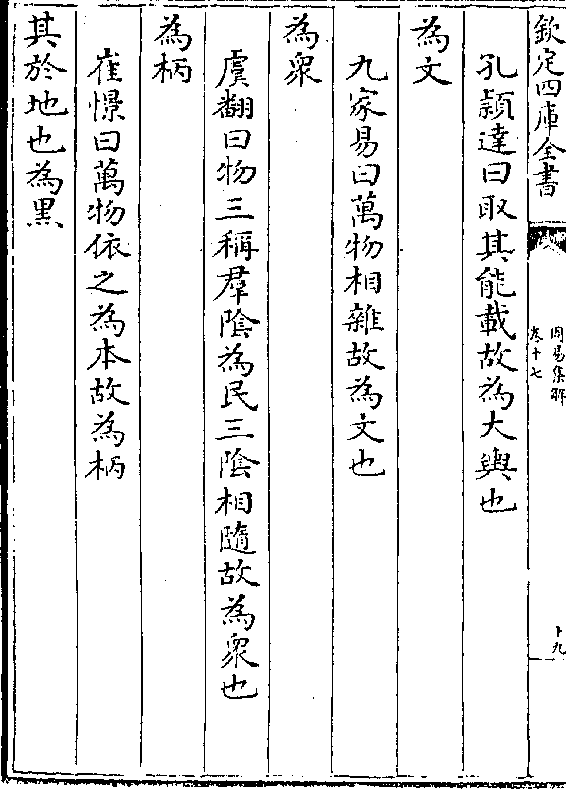 欽定四庫全書
周易集解
卷十七
十九
孔穎達曰取其能載故為大輿也
為文
九家易曰萬物相雜故為文也
為衆
虞翻曰物三稱羣陰為民三陰相隨故為衆也
為柄
崔憬曰萬物依之為本故為柄
其於地也為黑